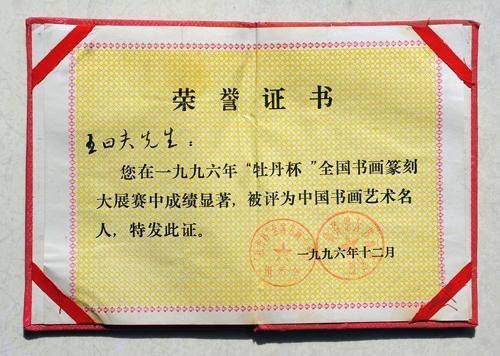 荣誉证书
王曰夫先生：
您在一九九六年“牡丹杯”全国书画篆刻
大展赛中成绩显著，被评为中国书画艺术名
人，特发此证。
一九九六年十二月